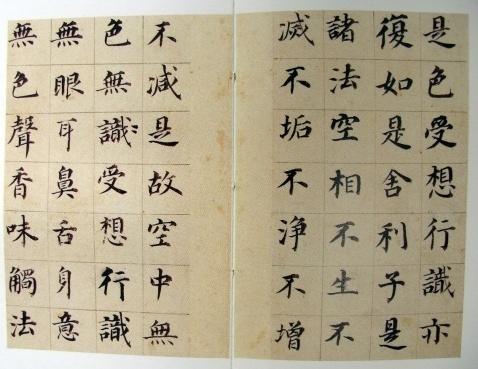 是色受想行識亦
復如是舍利子是
諸法空相不生不
滅不垢不淨不增
不減是故空中無
色無識受想行識
無眼耳鼻舌身意
無色聲香味觸法